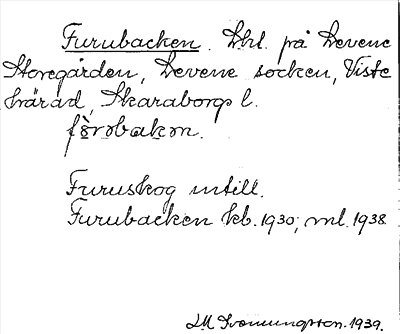 Furubacken. Lht. på Levene
Storegården, Levene socken, Viste
härad, Skaraborgs l.
Furuskog intill.
Furubacken kb. 1930; ml. 1938
1939.